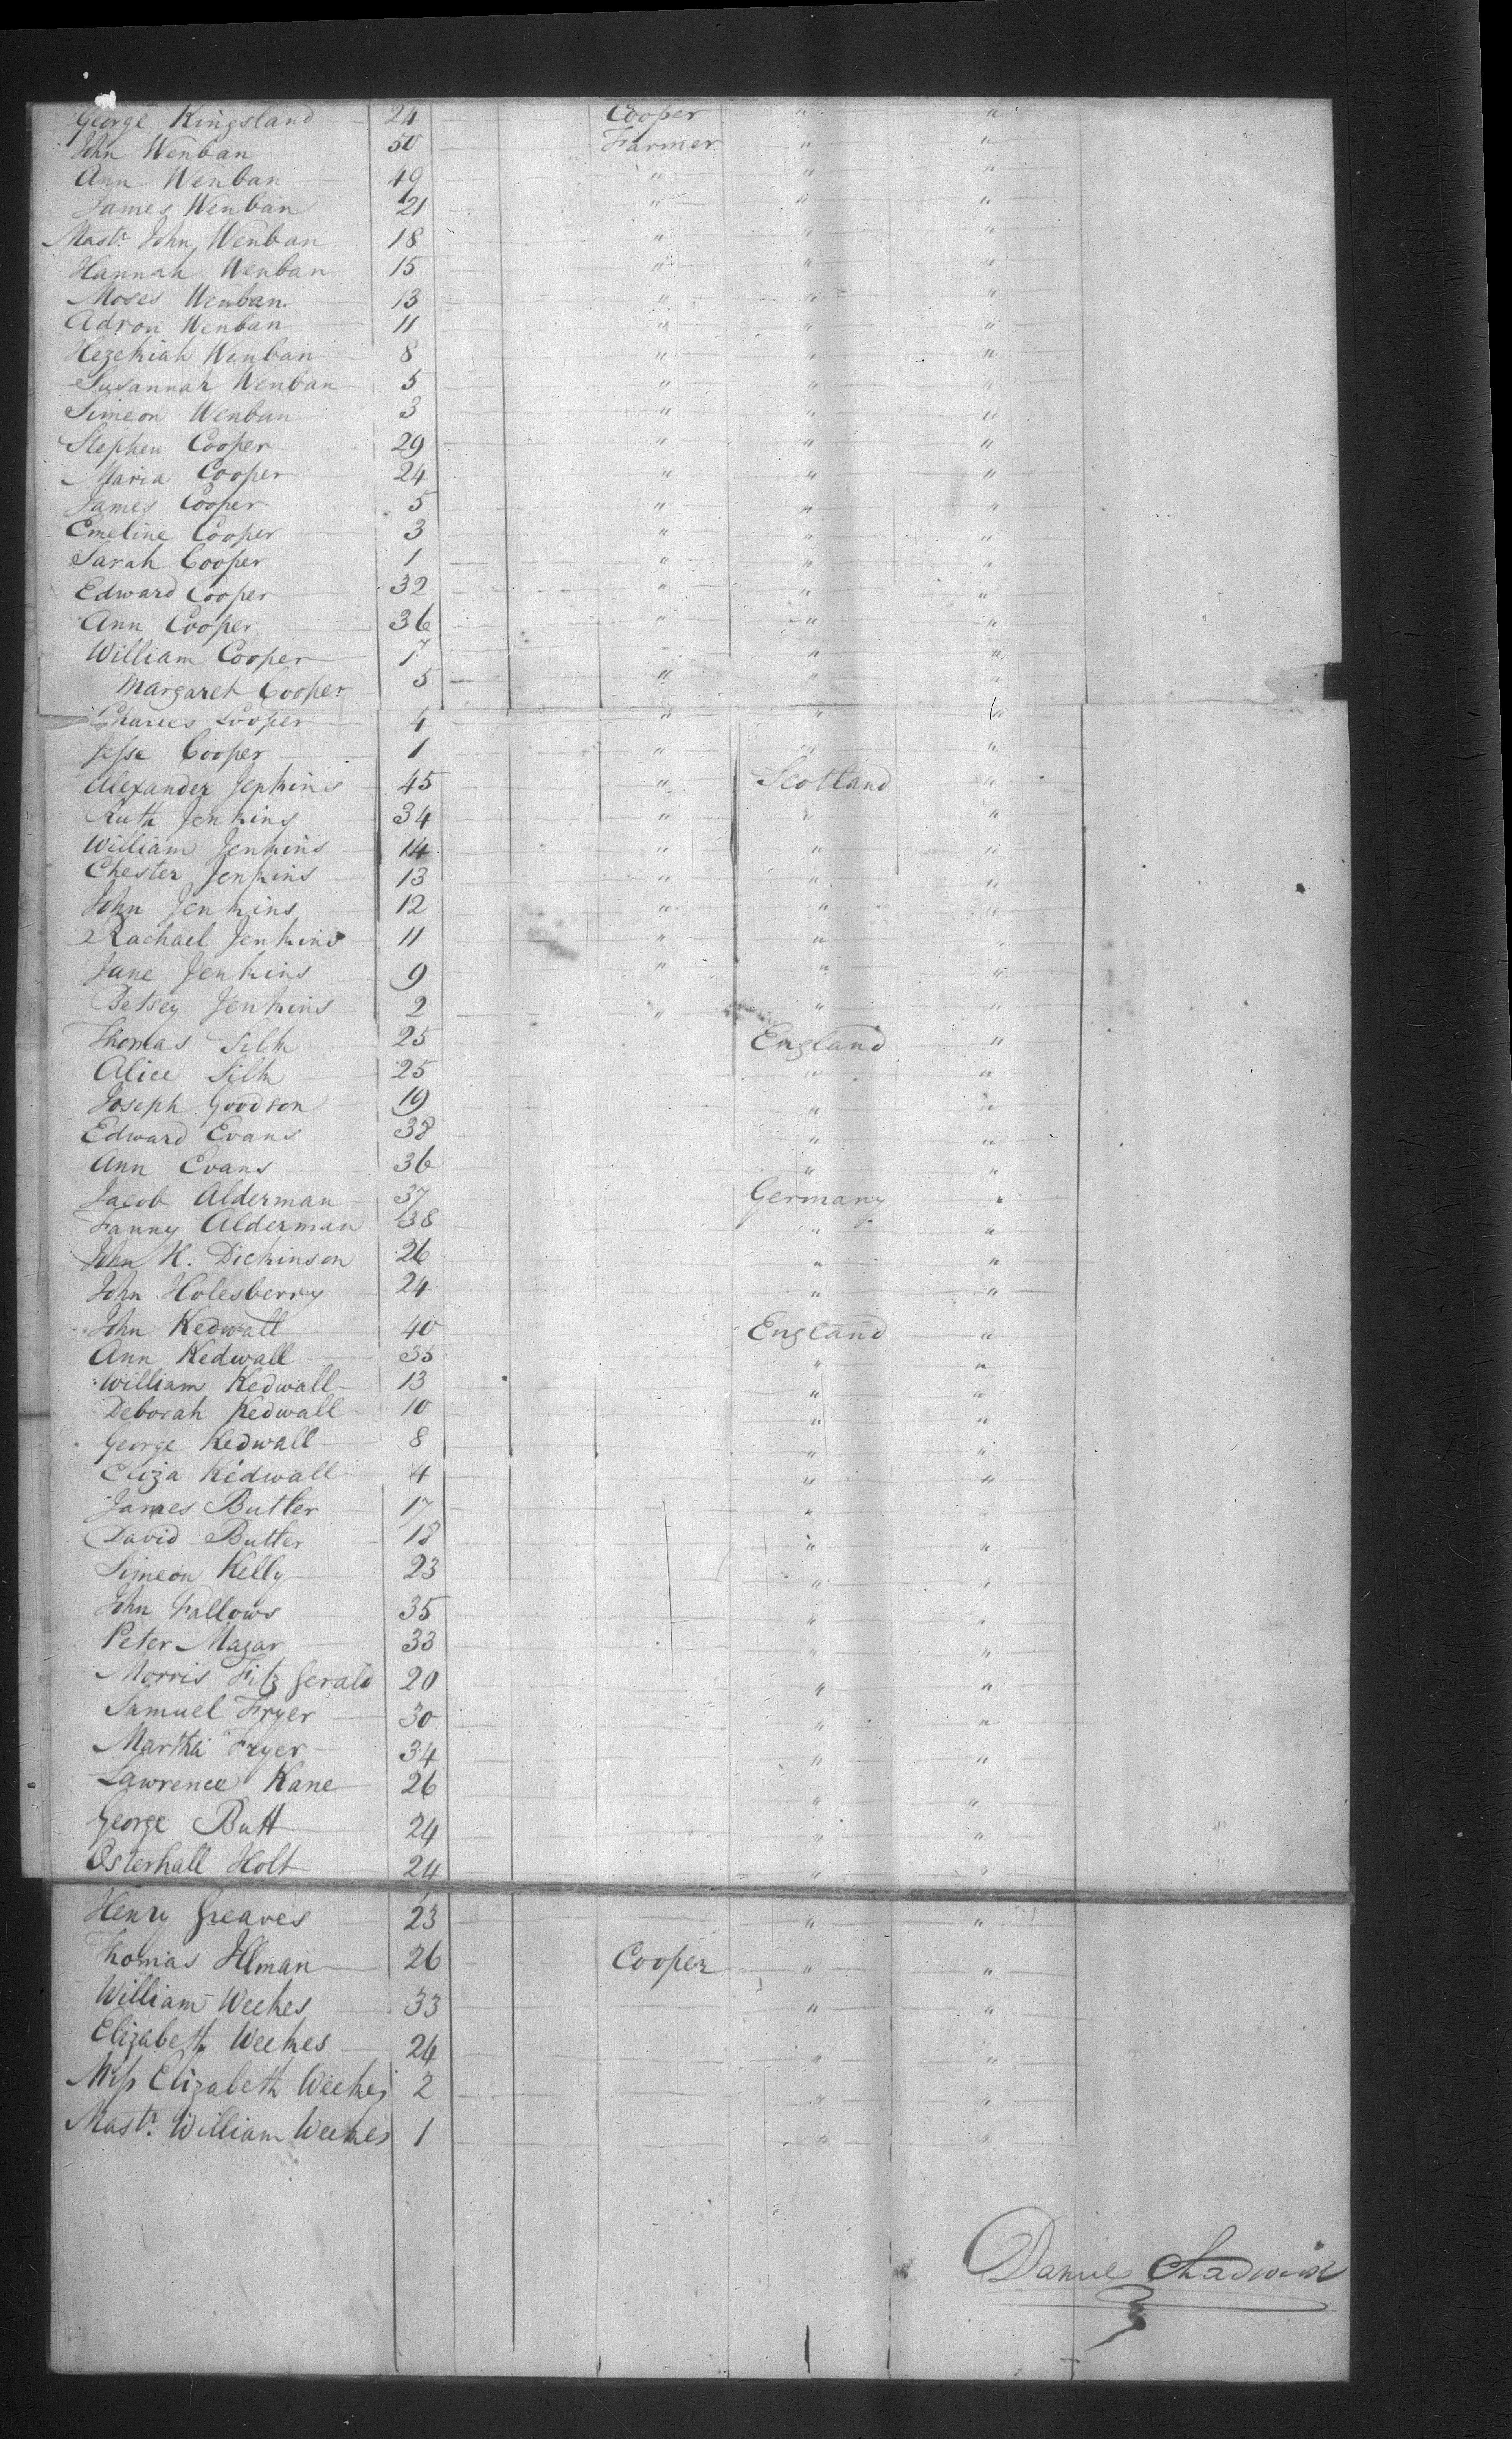 George Kingsland 24 Cooper " "
John Wenban 50 Farmer " "
Ann Wenban 49 " " "
James Wenban 21 " " "
Mastr. John Wenban 18 " " "
Hannah Wenban 15 " " "
Moses Wenban 13 " " "
Adron Wenban 11 " " "
Hezekiah Wenban 8 " " "
Susannah Wenban 5 " " "
Simeon Wenban 3 " " "
Stephen Cooper 29 " " "
Maria Cooper 24 " " "
James Cooper 5 " " "
Emeline Cooper 3 " " "
Sarah Cooper 1 " " "
Edward Cooper 32 " " "
Ann Cooper 36 " " "
William Cooper 7 " "
Margaret Cooper 5 " " "
Charles Cooper 4 " " "
Jesse Cooper 1 " " "
Alexander Jenkins 45 " Scotland "
Ruth Jenkins 34 " " "
William Jenkins 14 " " "
Chester Jenkins 13 " " "
John Jenkins 12 " " "
Rachael Jenkins 11 " " "
Jane Jenkins 9 " " "
Betsey Jenkins 2 " " "
Thomas Silk 25 England "
Alice Silk 25 " "
Joseph Goodson 19 " "
Edward Evans 38 " "
Ann Evans 36 " "
Jacob Alderman 37 Germany "
Fanny Alderman 38 " "
John K. Dickinson 26 " "
John Holesberry 24 " "
John Kedwall 40 England "
Ann Kedwall 35 " "
William Kedwall 13 " "
Deborah Kedwall 10 " "
George Kedwall 8 " "
Eliza Kedwall 4 " "
James Butler 17 " "
David Butler 18 " "
Simeon Kelly 23 " "
John Fallows 35 " "
Peter Magar 33 " "
Morris Fitz Gerald 20 " "
Samuel Fryer 30 " "
Martha Fryer 34 " "
Lawrence Kane 26 " "
George Butt 24 " "
Osterhall Holt 24 " "
Henry Greaves 23 " "
Thomas Illman 26 Cooper " "
William Weekes 33 " "
Elizabeth Weekes 24 " "
Miss Elizabeth Weekes 2 " "
Mastr. William Weekes 1 " "
Daniel Chadwick